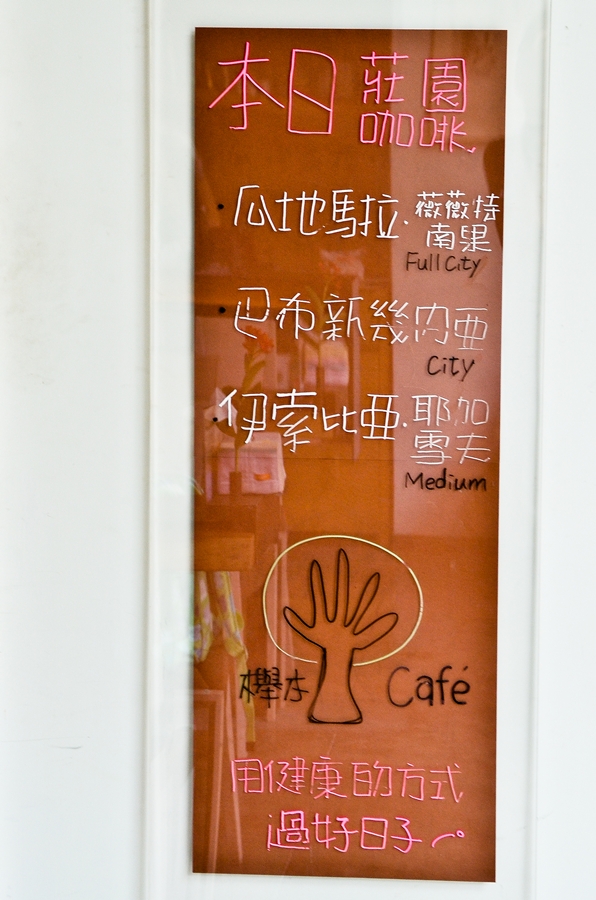 本日莊園咖啡
瓜地馬拉.薇薇特南果
Full City
巴布新幾內亞
City
伊索比亜.耶加雪夫
Medium
櫸木 Café
用健康的方式
過好日子~